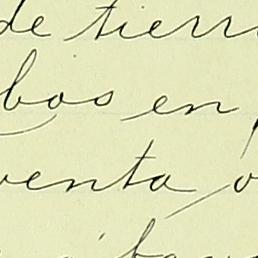 de tierr
bos en
venta o